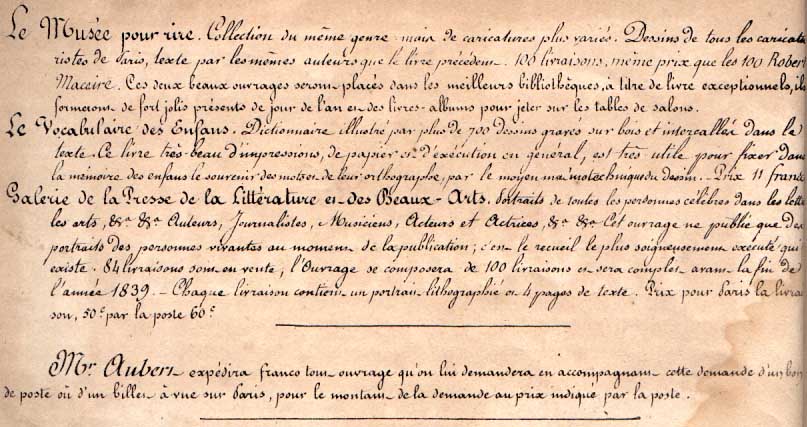 Le Musée pour rire. Collection du même genre mais de caricatures plus variés. Dessins de tous les caricatu
ristes de Paris, texte par les mêmes auteurs que le livre précédent. 100 livraisons, même prix que les 100 Robert
Macaire. Ces deux beaux ouvrages seront placés dans les meilleurs bibliothèques, à titre de livre exceptionnels, ils
formeront de fort jolis présents de jour de l'an et des livres-albums pour jeter sur les tables de salons.
Le Vocabulaire des Enfans. Dictionnaire illustré par plus de 700 dessins gravés sur bois et intercallés dans le
texte. Ce livre très-beau d'impressions, de papier et d'exécution en général, est très utile pour fixer dans
la mémoire des enfans le souvenir des mots et de leur orthographe, par le moyen mnémotechnique du dessin. - Prix 11 francs
Galerie de la Presse de la Littérature et des Beaux-Arts. Portraits de toutes les personnes célèbres dans les lettr
les arts, &a &a Auteurs, Journalistes, Musiciens, Acteurs et Actrices, &a &a Cet ouvrage ne publié que des
portraits des personnes vivantes au moment de la publication; c'est le recueil le plus soigneusement exécuté qui
existe. 84 livraisons sont en vente; l'Ouvrage se composera de 100 livraisons et sera complet avant la fin de
l'année 1839. - Chaque livraison contient un portrait lithographié et 4 pages de texte. Prix pour Paris la livrai
son, 50c par la poste 60c
Mr Aubert expédira franco tout ouvrage qu'on lui demandera en accompagnant cette demande d'un bon
de poste où d'un billet à vue sur Paris, pour le montant de la demande au prix indiqué par la poste.